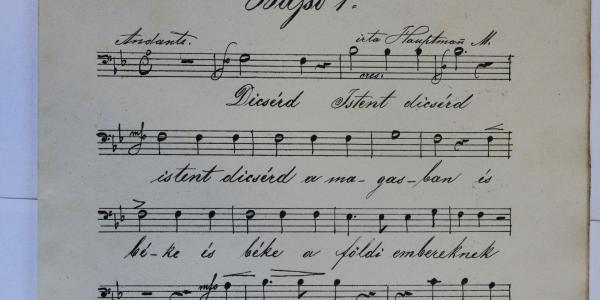 Andante. irta Hauptmañ M.
cres.
Dicsérd Istent dicsérd
mfo
istent dicsérd a ma-gas-ban és
bé-ke és béke a földi embereknek
mfo